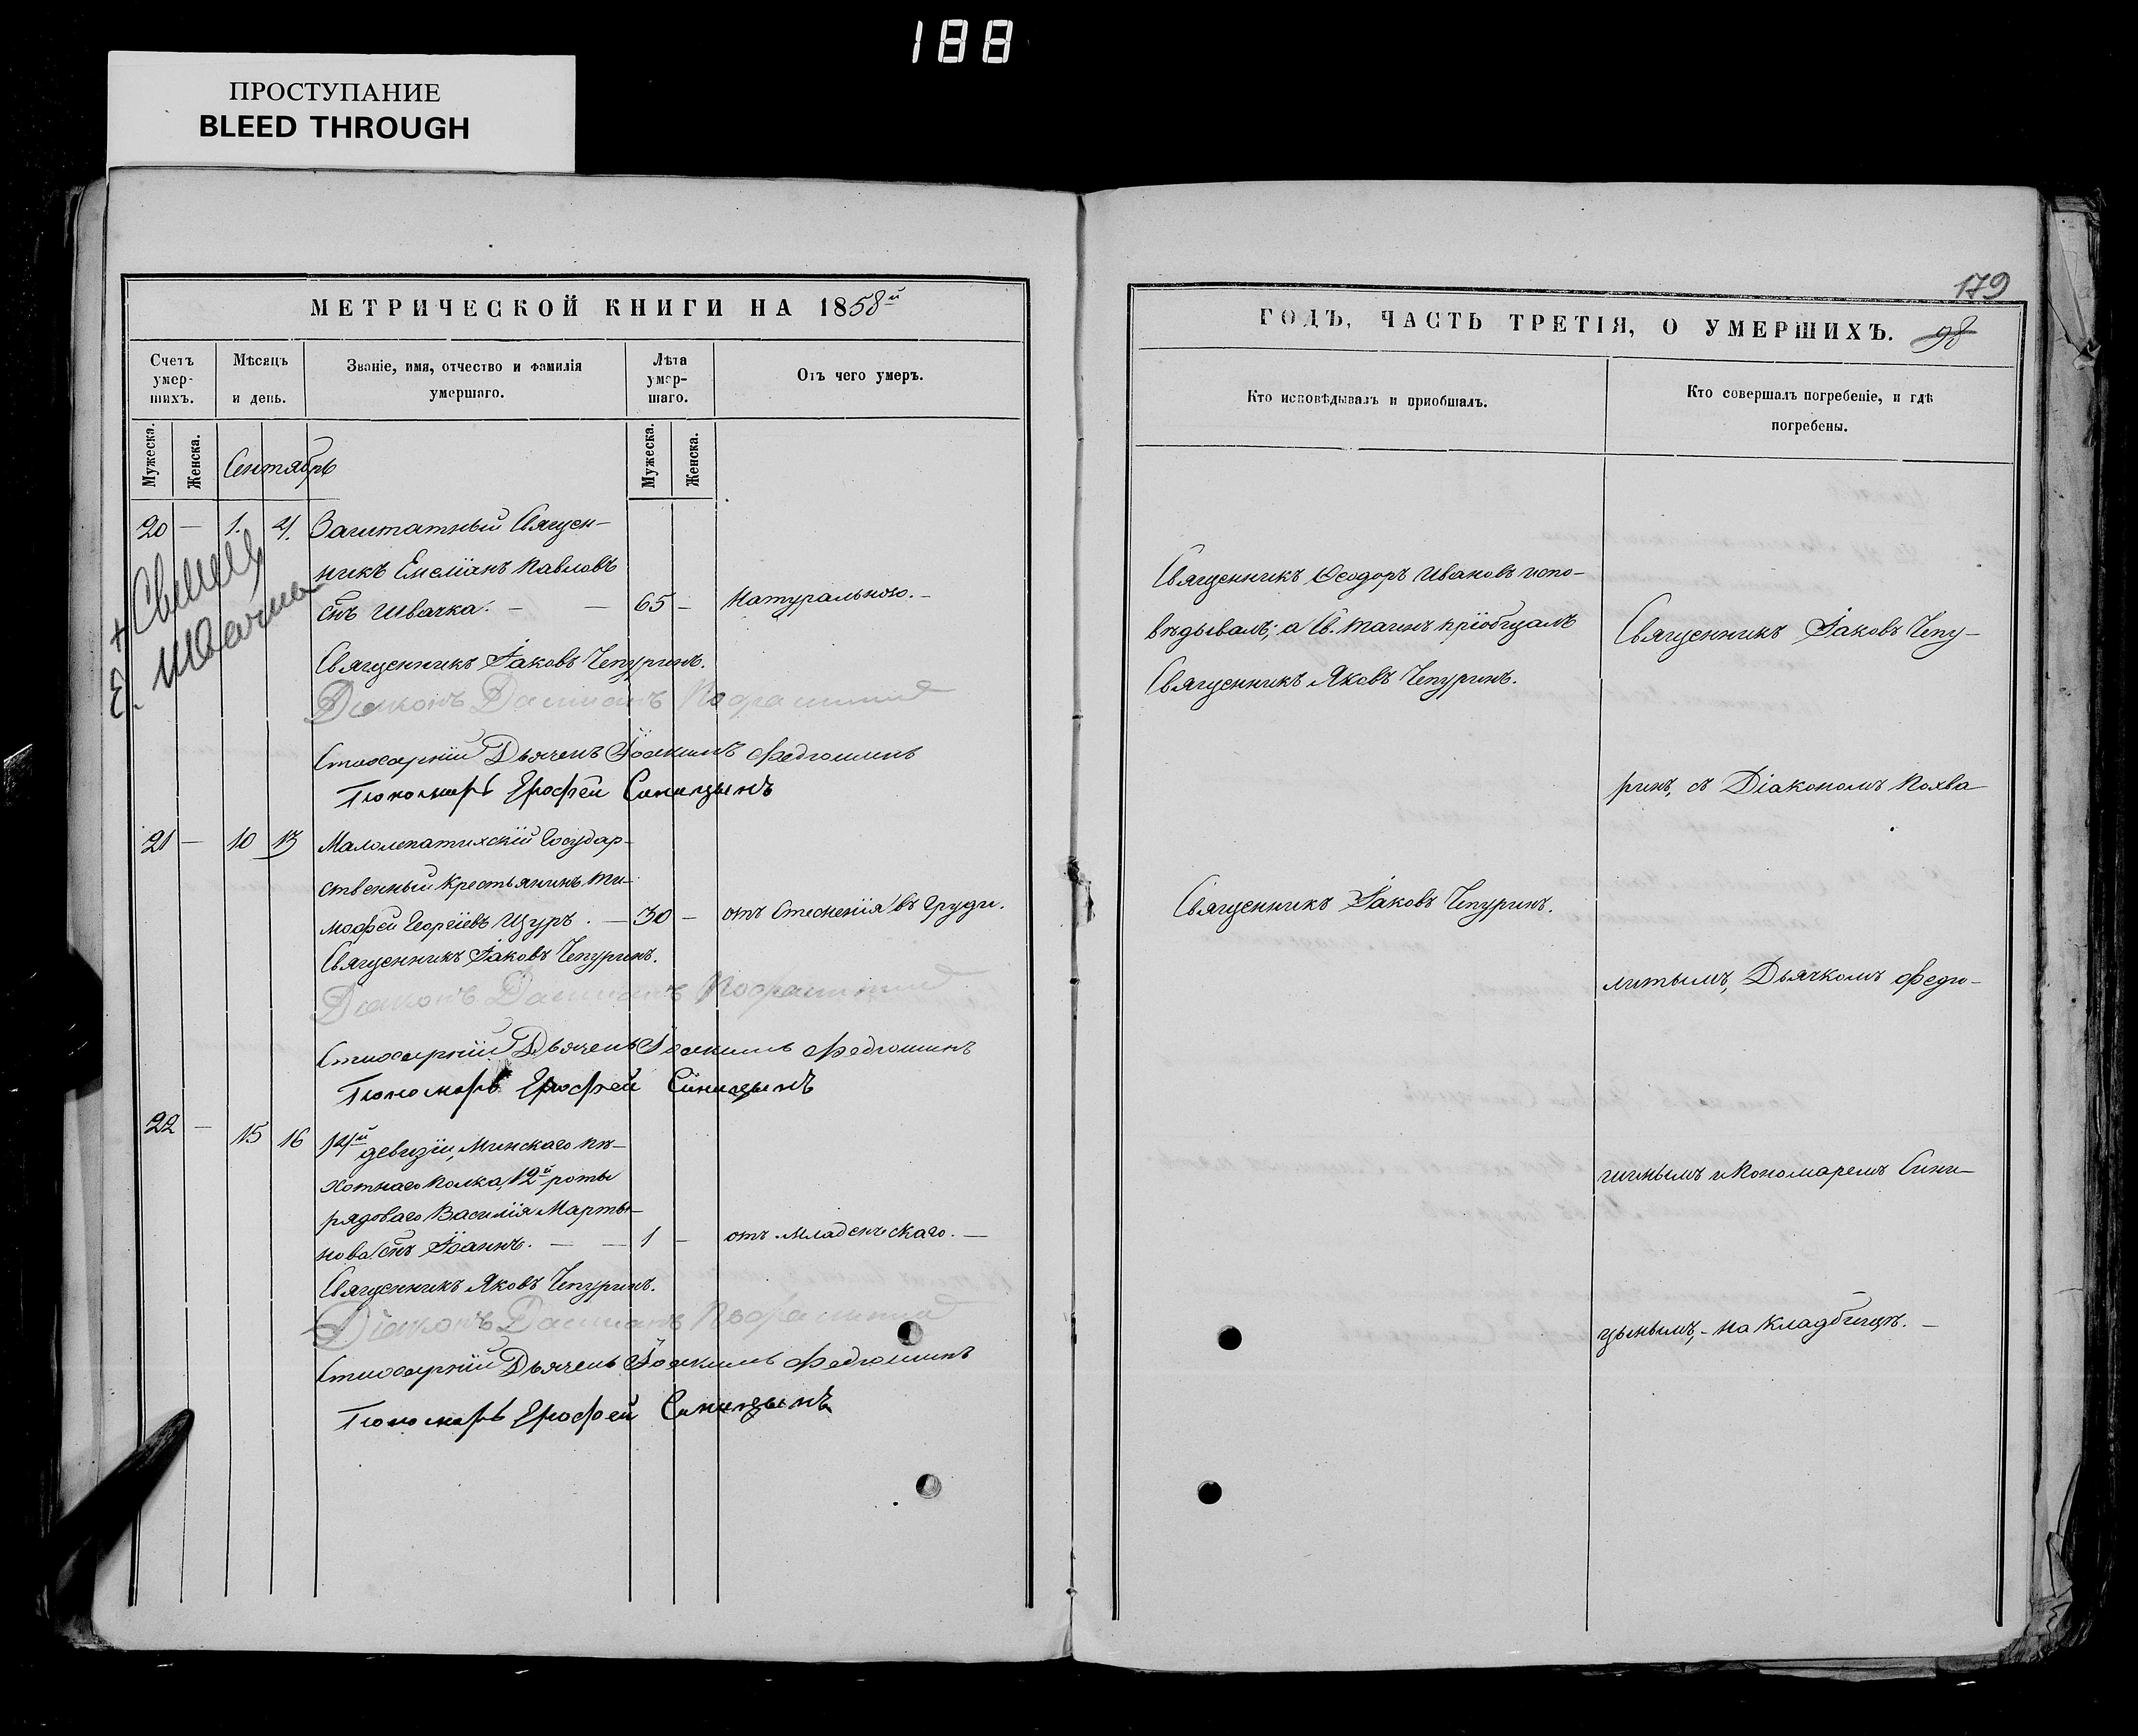 188
ПРОСТУПАНИЕ
BLEED THROUGH
МЕТРИЧЕСКОЙ КНИГИ НА 1858й
Счетъ умер-шихъ.
Мѣсяцъ и день.
Званіе, имя, отчество и фамилія умершаго.
Лѣта умер-шаго.
Отъ чего умеръ.
Мужеска.
Женска.
Сентябрь
Мужеска.
Женска.
20 — 1. 4. Заштатный Священ-
никъ Емеліанъ Павловъ
снъ Швачка. — — 65 — Натуральною. —
+ Свящ
Е. Швачка
Священникъ Іаковъ Чепуринъ.
Діаконъ Даміанъ
Стихарній Дьячекъ Іоакимъ Федюшинъ
Пономарь Ерофей Синицынъ
21 — 10 13 Малолепатихскій Государ-
ственный крестьянинъ Ти-
мофей Георгіевъ Щуръ. — 30 — отъ Стесненія въ Груди.
Священникъ Іаковъ Чепуринъ.
Діаконъ Даміанъ
Стихарній Дьячекъ Іоакимъ Федюшинъ
Пономарь Ерофей Синицынъ
22 — 15 16 14й девизіи, Минскаго пѣ-
хотнаго полка, 12й роты
рядоваго Василія Марты-
нова снъ Іоаннъ. — — 1 — отъ младенческаго. —
Священникъ Яковъ Чепуринъ.
Діаконъ Даміанъ
Стихарній Дьячекъ Іоакимъ Федюшинъ
Пономарь Ерофей Синицынъ
179
ГОДЪ, ЧАСТЬ ТРЕТІЯ, О УМЕРШИХЪ. 98
Кто исповѣдывалъ и приобщалъ.
Кто совершалъ погребеніе, и гдѣ погребены.
Священникъ Ѳеодоръ Ивановъ испо-
вѣдывалъ; а Св. таинъ пріобщалъ
Священникъ Яковъ Чепуринъ.
Священникъ Іаковъ Чепуринъ.
Священникъ Іаковъ Чепу-
ринъ, съ Діакономъ Похва
литымъ, Дьячкомъ Федю-
шинымъ и Пономаремъ Сини-
цынымъ, - на кладбищѣ. —